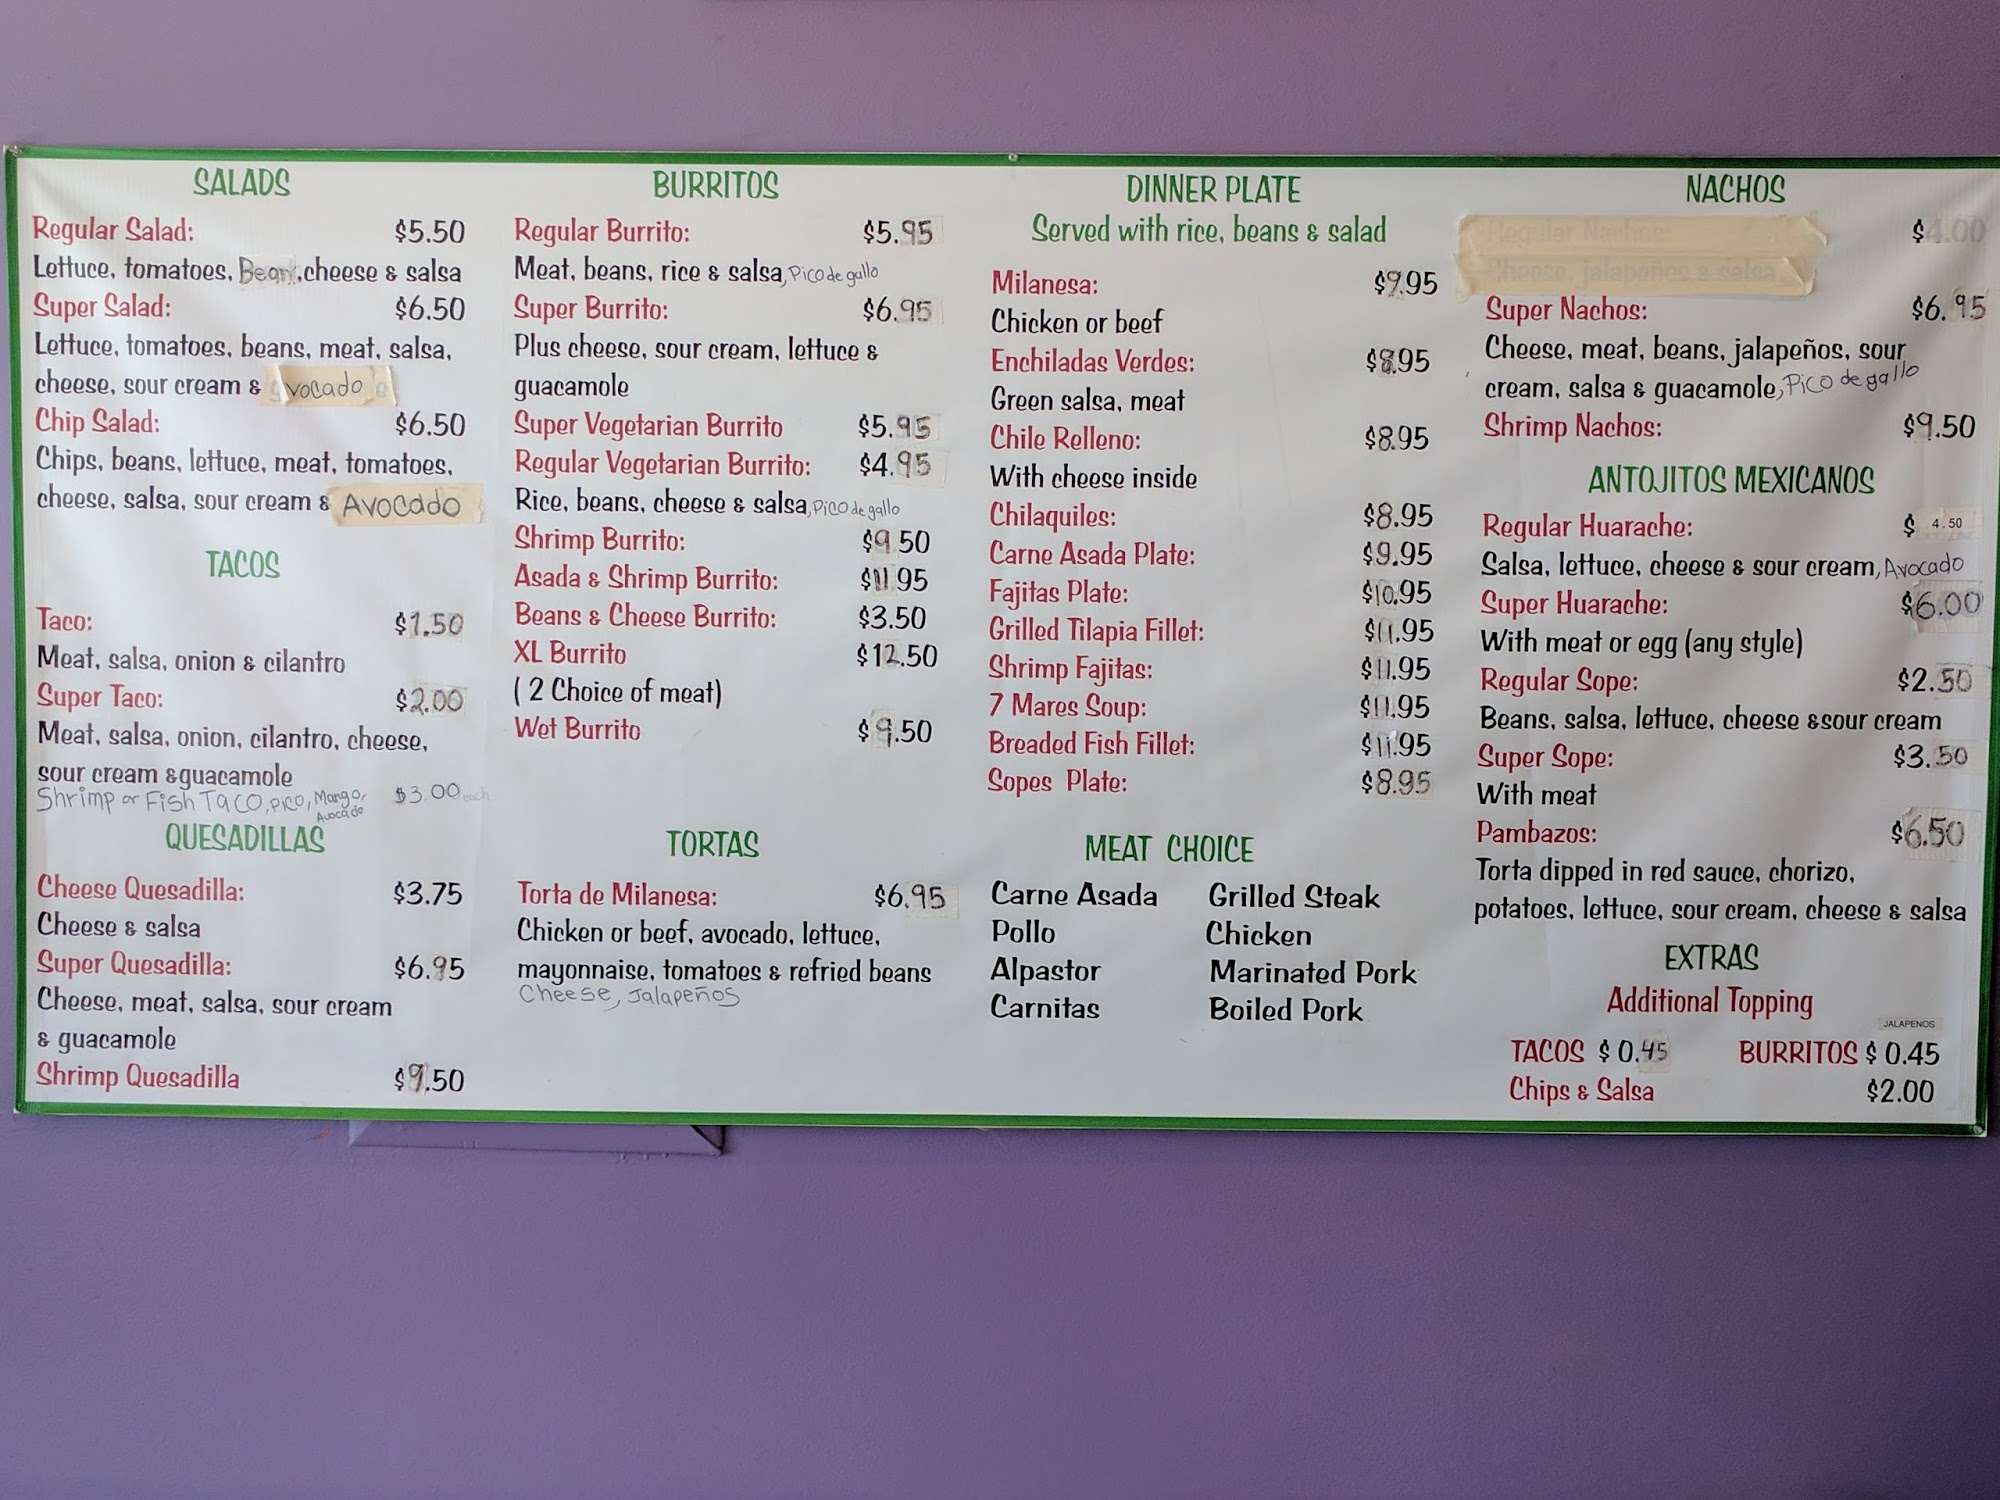 SALADS
Regular Salad: $5.50
Lettuce, tomatoes, Bean, cheese & salsa
Super Salad: $6.50
Lettuce, tomatoes, beans, meat, salsa,
cheese, sour cream & avocado
Chip Salad: $6.50
Chips, beans, lettuce, meat, tomatoes,
cheese, salsa, sour cream & Avocado
TACOS
Taco: $1.50
Meat, salsa, onion & cilantro
Super Taco: $2.00
Meat, salsa, onion, cilantro, cheese,
sour cream &guacamole
Shrimp or Fish Taco, pico, Mango, $3.00 each
Avocado
QUESADILLAS
Cheese Quesadilla: $3.75
Cheese & salsa
Super Quesadilla: $6.95
Cheese, meat, salsa, sour cream
& guacamole
Shrimp Quesadilla $9.50
BURRITOS
Regular Burrito: $5.95
Meat, beans, rice & salsa, Pico de gallo
Super Burrito: $6.95
Plus cheese, sour cream, lettuce &
guacamole
Super Vegetarian Burrito $5.95
Regular Vegetarian Burrito: $4.95
Rice, beans, cheese & salsa, Pico de gallo
Shrimp Burrito: $9.50
Asada & Shrimp Burrito: $11.95
Beans & Cheese Burrito: $3.50
XL Burrito $12.50
( 2 Choice of meat)
Wet Burrito $9.50
TORTAS
Torta de Milanesa: $6.95
Chicken or beef, avocado, lettuce,
mayonnaise, tomatoes & refried beans
Cheese, Jalapeños
DINNER PLATE
Served with rice, beans & salad
Milanesa: $9.95
Chicken or beef
Enchiladas Verdes: $8.95
Green salsa, meat
Chile Relleno: $8.95
With cheese inside
Chilaquiles: $8.95
Carne Asada Plate: $9.95
Fajitas Plate: $10.95
Grilled Tilapia Fillet: $11.95
Shrimp Fajitas: $11.95
7 Mares Soup: $11.95
Breaded Fish Fillet: $11.95
Sopes Plate: $8.95
MEAT CHOICE
Carne Asada Grilled Steak
Pollo Chicken
Alpastor Marinated Pork
Carnitas Boiled Pork
NACHOS
Regular Nachos: $4.00
Cheese, jalapeños & salsa
Super Nachos: $6.95
Cheese, meat, beans, jalapeños, sour
cream, salsa & guacamole, Pico de gallo
Shrimp Nachos: $9.50
ANTOJITOS MEXICANOS
Regular Huarache: $ 4.50
Salsa, lettuce, cheese & sour cream, Avocado
Super Huarache: $6.00
With meat or egg (any style)
Regular Sope: $2.50
Beans, salsa, lettuce, cheese &sour cream
Super Sope: $3.50
With meat
Pambazos: $6.50
Torta dipped in red sauce, chorizo,
potatoes, lettuce, sour cream, cheese & salsa
EXTRAS
Additional Topping
JALAPENOS
TACOS $ 0.45 BURRITOS $ 0.45
Chips & Salsa $2.00